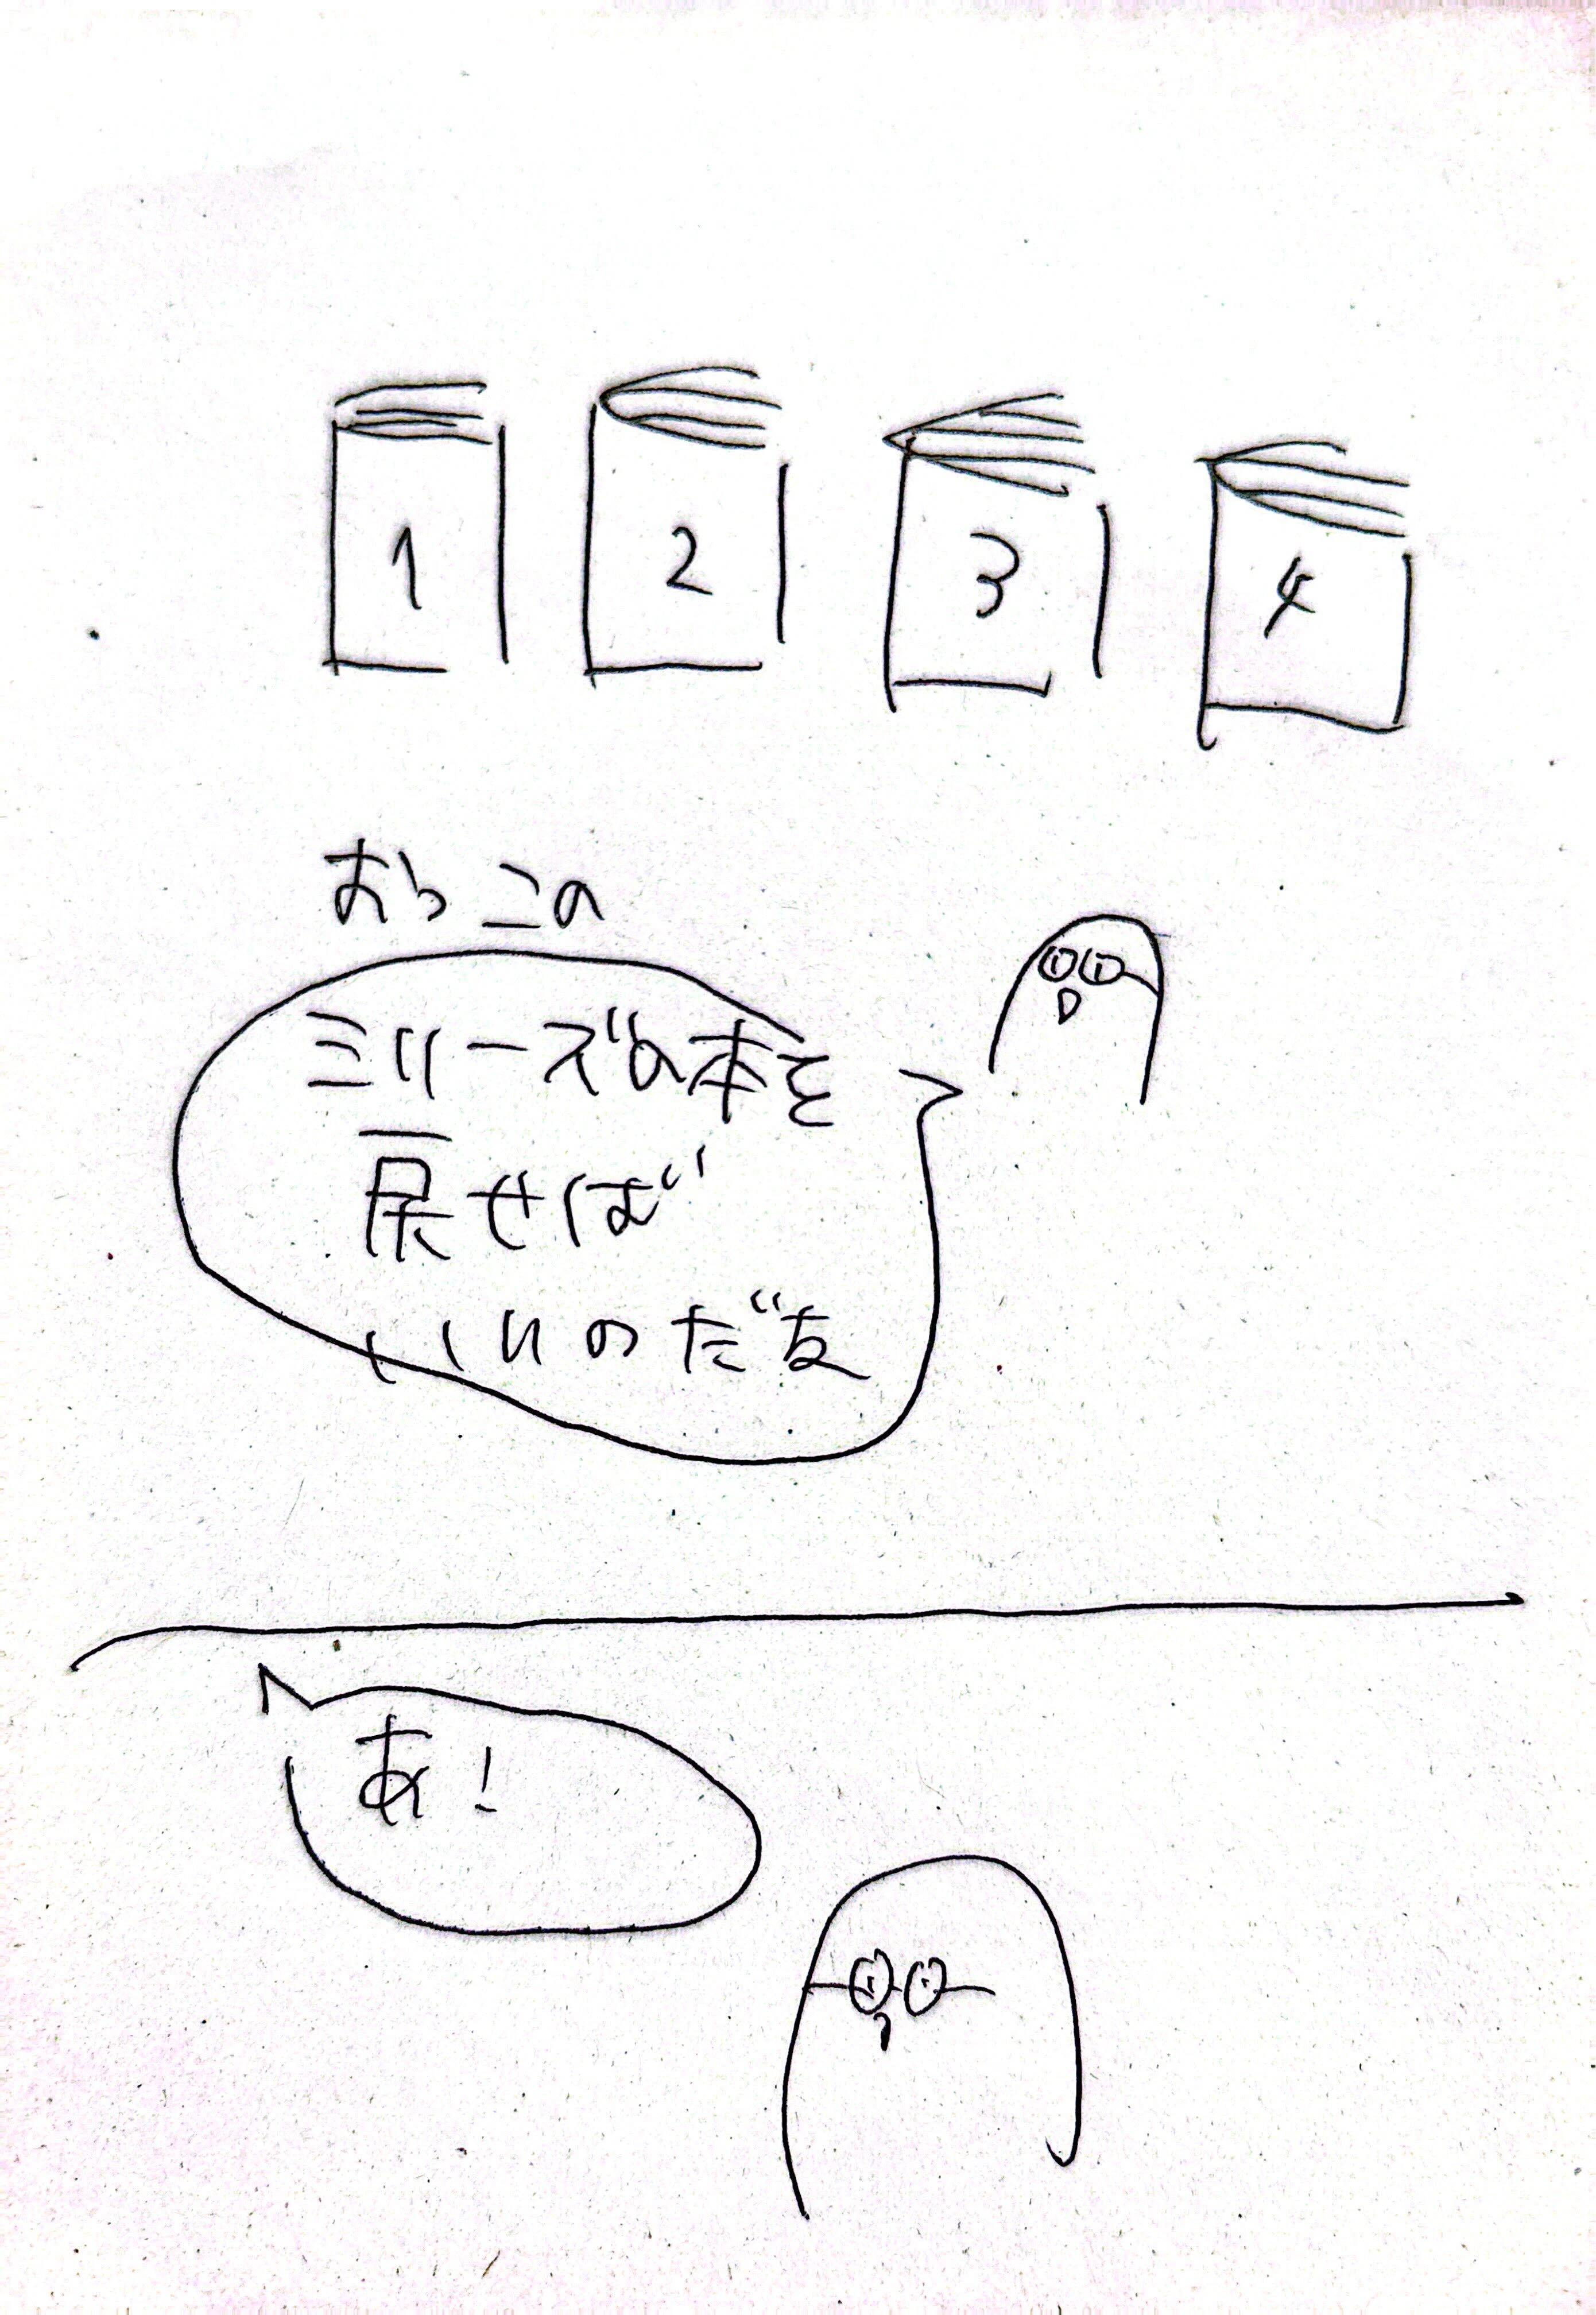 1 2 3 4
おらこの
ミリーズの本を
戻せば
いいのだな
あ!